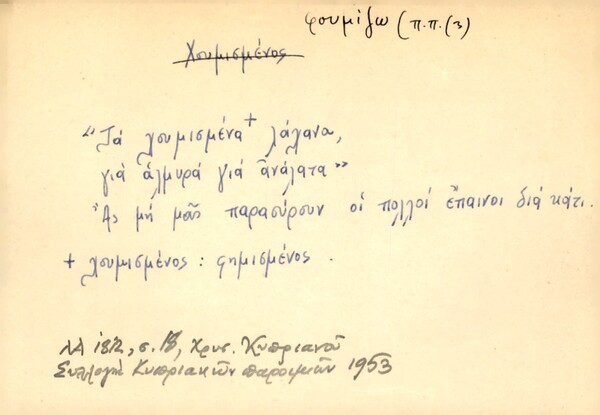 φουμίζω (π.π. (3)
Χουμισμένος
"Τά χουμισμένα+ λάχανα,
γιά ἁλμυρά γιά ἀνάλατα"
Ἄς μή μᾶς παρασύρουν οἱ πολλοί ἔπαινοι διά κάτι.
+ χουμισμένος : φημισμένος .
ΛΑ 1812, σ. , Χρυσ. Κυπριανοῦ
Συλλογή Κυπριακῶν παροιμιῶν 1953